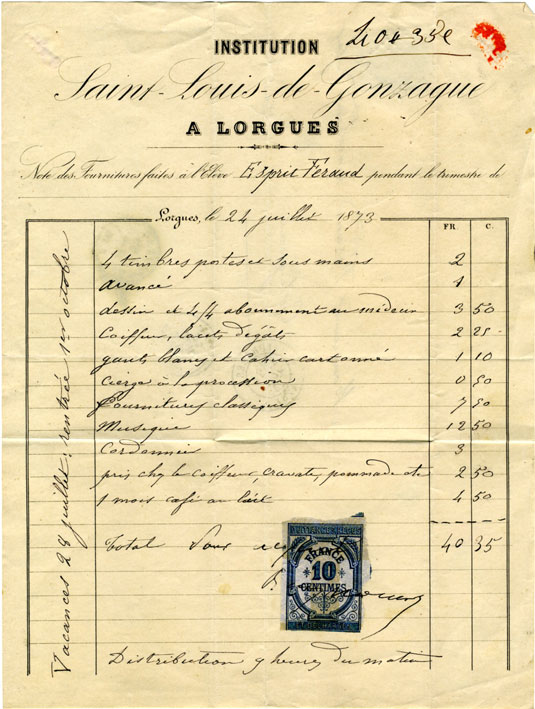 40 # 35c
INSTITUTION
Saint-Louis-de-Gonzague
A LORGUES
Note des Fournitures faites à l'Elève Esprit Féraud pendant le trimestre de
Lorgues, le 24 juillet 1873 FR. C.
4 timbres postes et sous mains 2
avancé 1
dessin et 4/4 abonnement au médecin 3 50
Coiffeur, lacets dégâts 2 25
gants blancs et cahier cartonné 1 10
cierge à la procession 0 50
fournitures classiques 7 50
Musique 12 50
Cordonnier 3
pris chez le coiffeur, cravate, pommade etc 2 50
1 mois café au lait 4 50
total Pour 40 35
FRANCE
10
CENTIMES
Distribution 9 heures du matin
Vacances 28 juillet ; rentrée 1er octobre